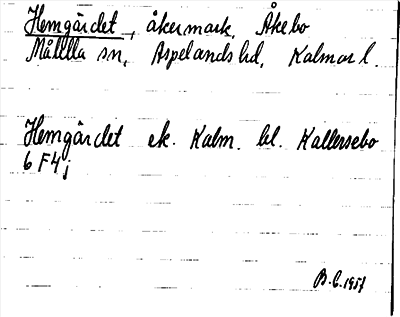 Hemgärdet, åkermark, Åkebo
Målilla sn, Aspelands hd, Kalmar l.
Hemgärdet ek. Kalm. bl. Kallersebo
6 F4j
B.C. 1951